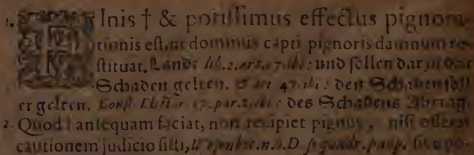 1. FInis † & potissimus effectus pignora-
tionis est, ut dominus capti pignoris damnum re-
stituat. Landr. lib. 2. art. 47. ibi: und sollen darzu den
Schaden gelten. & art. 47. ibi: den Schaden soll
er gelten. Const. Elect. 27. par. 2. ibi: des Schadens Abtrag.
2. Quod † antequam faciat, non recipiet pignus, nisi offerat
cautionem judicio sisti,